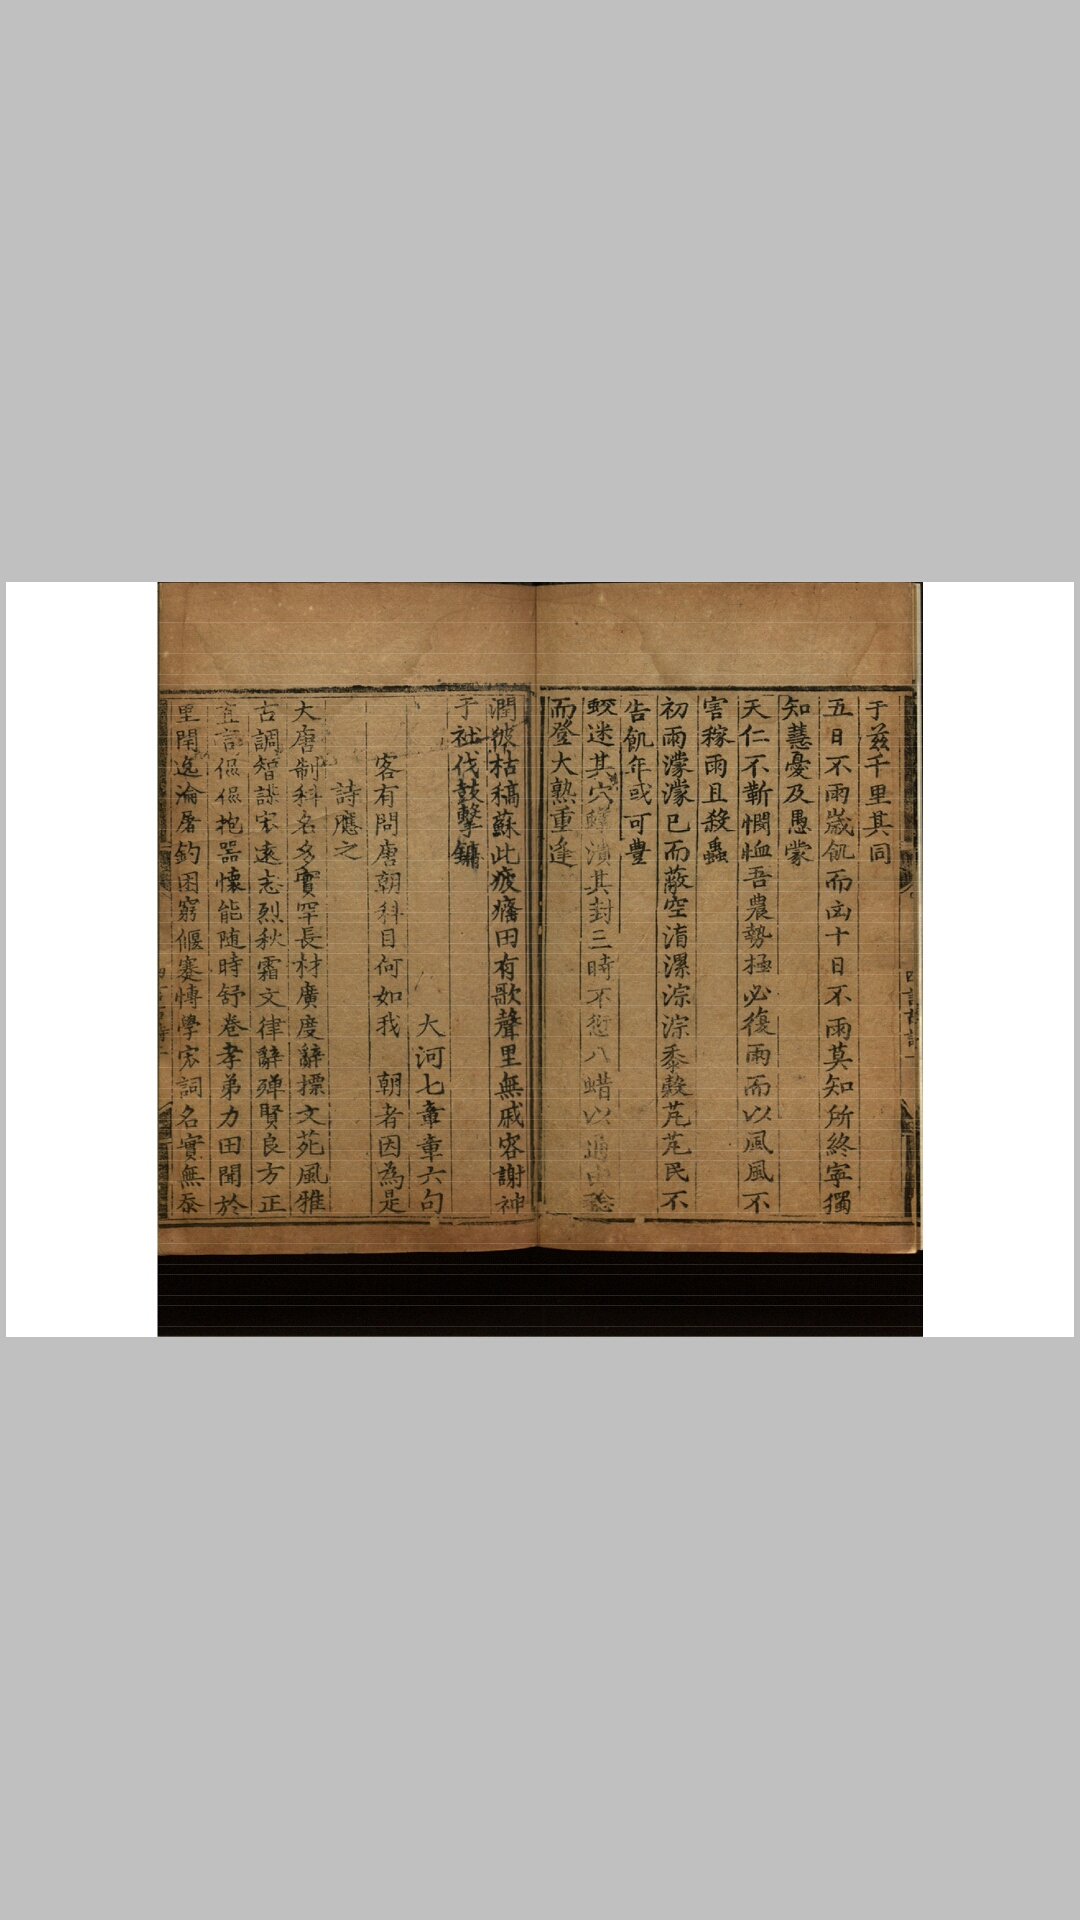 于茲千里其同
五日不雨歲飢而凶十日不雨莫知所終寧獨
知慧憂及愚蒙
天仁不靳憫恤吾農勢極必復雨而以風風不
害稼雨且殺蟲
初雨濛濛已而蔽空漘漯淙淙黍穀芃芃民不
告飢年或可豐
蛟迷其穴蟻潰其封三時不愆八蜡以通
而登大熟重逢
潤彼枯稿蘇此疲癃田有歌聲里無戚容謝神
于社伐鼓擊鏞
大河七章章六句
客有問唐朝科目何如我 朝者因為是
詩應之
大唐制科名多實罕長材廣度辭摽文苑風雅
古調智謀宏遠志烈秋霜文律辭殫賢良方正
直言侃侃抱器懷能隨時舒卷孝弟力田聞於
里閈逸淪屠釣困窮偃蹇愽學宏詞名實無忝